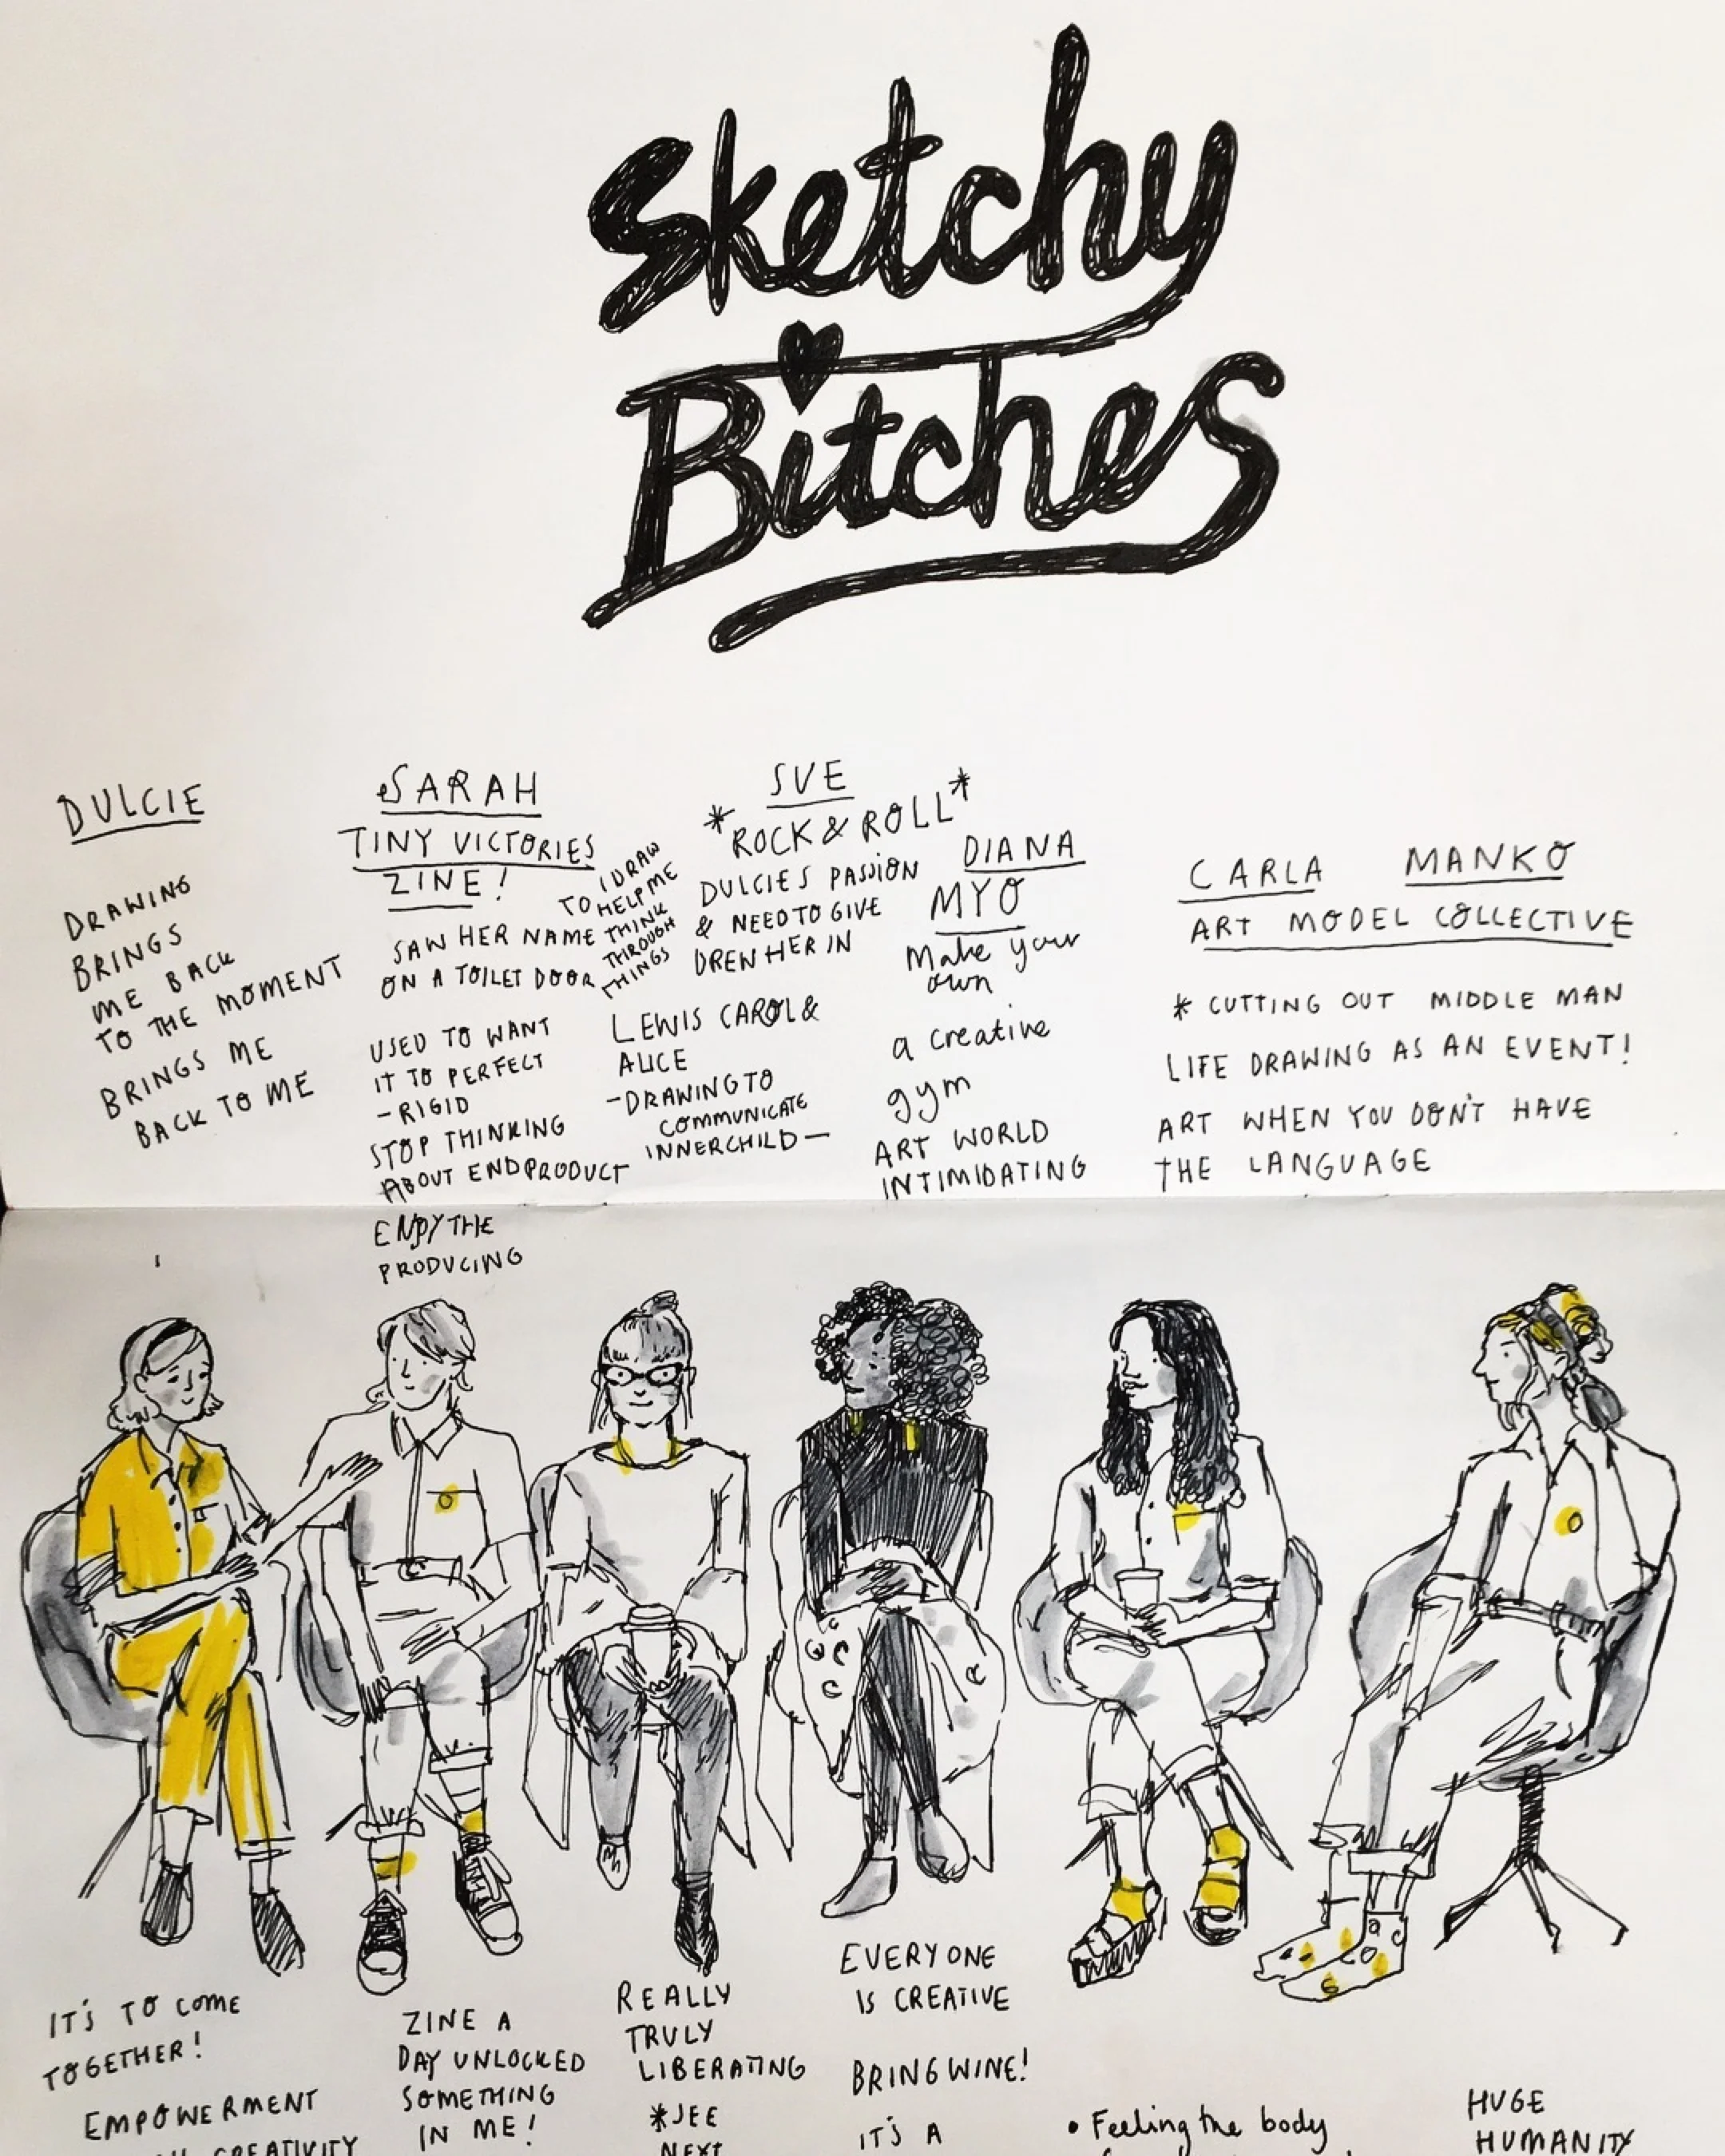 Sketchy
Bitches
DULCIE
DRAWING
BRINGS
ME BACK
TO THE MOMENT
BRINGS ME
BACK TO ME
SARAH
TINY VICTORIES
ZINE!
SAW HER NAME
ON A TOILET DOOR
USED TO WANT
IT TO PERFECT
- RIGID
STOP THINKING
ABOUT ENDPRODUCT
ENJOY THE
PRODUCING
I DRAW
TO HELP ME
THINK
THROUGH
THINGS
SUE
*ROCK & ROLL*
DULCIES PASSION
& NEED TO GIVE
DREW HER IN
LEWIS CAROL &
ALICE
- DRAWING TO
COMMUNICATE
INNERCHILD -
DIANA
MYO
Make your
own
a creative
gym
ART WORLD
INTIMIDATING
CARLA MANKO
ART MODEL COLLECTIVE
* CUTTING OUT MIDDLE MAN
LIFE DRAWING AS AN EVENT!
ART WHEN YOU DON'T HAVE
THE LANGUAGE
IT'S TO COME
TOGETHER!
EMPOWERMENT
CREATIVITY
ZINE A
DAY UNLOCKED
SOMETHING
IN ME!
REALLY
TRULY
LIBERATING
*SEE
NEXT
EVERYONE
IS CREATIVE
BRING WINE!
IT'S A
• Feeling the body
HUGE
HUMANITY